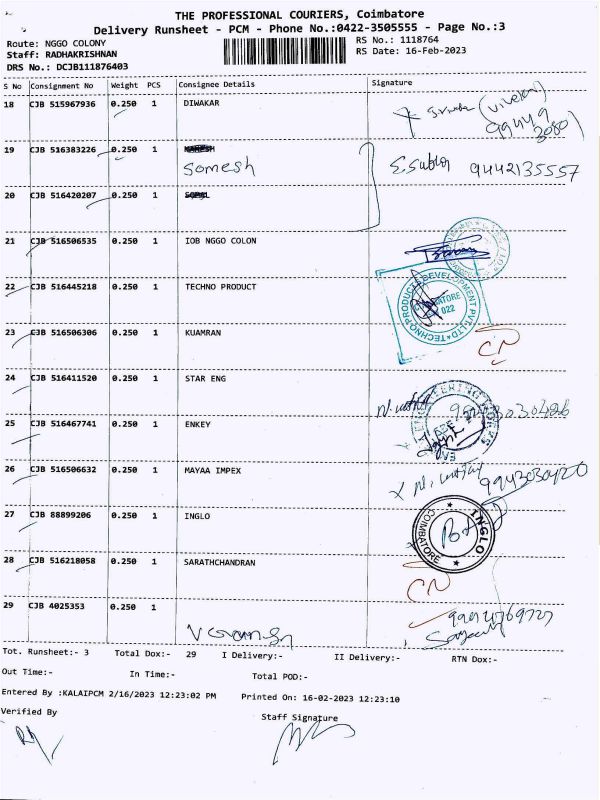 THE PROFESSIONAL COURIERS, Coimbatore
Delivery Runsheet - PCM - Phone No.:0422-3505555 - Page No.:3
Route: NGGO COLONY
Staff: RADHAKRISHNAN
DRS No.: DCJB111876403
RS No.: 1118764
RS Date: 16-Feb-2023
S No Consignment No Weight PCS Consignee Details Signature
18 CJB 515967936 0.250 1 DIWAKAR
99449
19 CJB 516383226 0.250 1
Somesh 9442135557
20 CJB 516420207 0.250 1
21 CJB 516506535 0.250 1 IOB NGGO COLON
22 CJB 516445218 0.250 1 TECHNO PRODUCT
TECHNOPRODUCTS DEVELOPMENT PVT.LTD
COIMBATORE
022
23 CJB 516506306 0.250 1 KUAMRAN
CN
24 CJB 516411520 0.250 1 STAR ENG
25 CJB 516467741 0.250 1 ENKEY
26 CJB 516506632 0.250 1 MAYAA IMPEX
9943030420
27 CJB 88899206 0.250 1 INGLO
INGLO
COIMBATORE
28 CJB 516218058 0.250 1 SARATHCHANDRAN
CN
29 CJB 4025353 0.250 1
Tot. Runsheet:- 3 Total Dox:- 29 I Delivery:- II Delivery:- RTN Dox:-
Out Time:- In Time:- Total POD:-
Entered By :KALAIPCM 2/16/2023 12:23:02 PM Printed On: 16-02-2023 12:23:10
Verified By Staff Signature